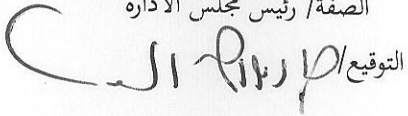 الصفة/ رئيس مجلس الادارة
التوقيع/